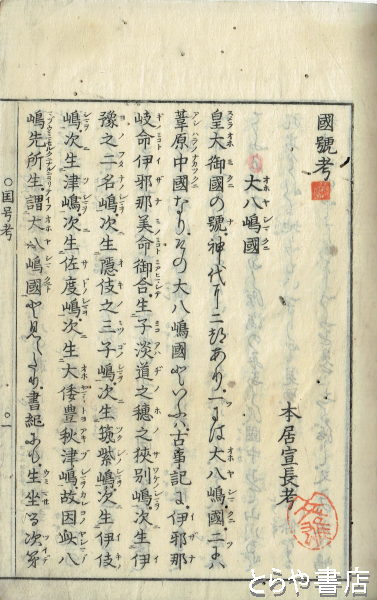 國號考
本居宣長考
大八嶋國
皇大御國の號神代より二ツあり一には大八嶋國二には
葦原中國なりその大八嶋國といふは古事記に伊邪那
岐命伊邪那美命御合生子淡道之穗之狹別嶋次生伊
豫之二名嶋次生隱伎之三子嶋次生筑紫嶋次生伊伎
嶋次生津嶋次生佐度嶋次生大倭豊秋津嶋故因此八
嶋先所生謂大八嶋國と見えたり書紀にも生坐る次第
○国号考 ○一
とらや書店